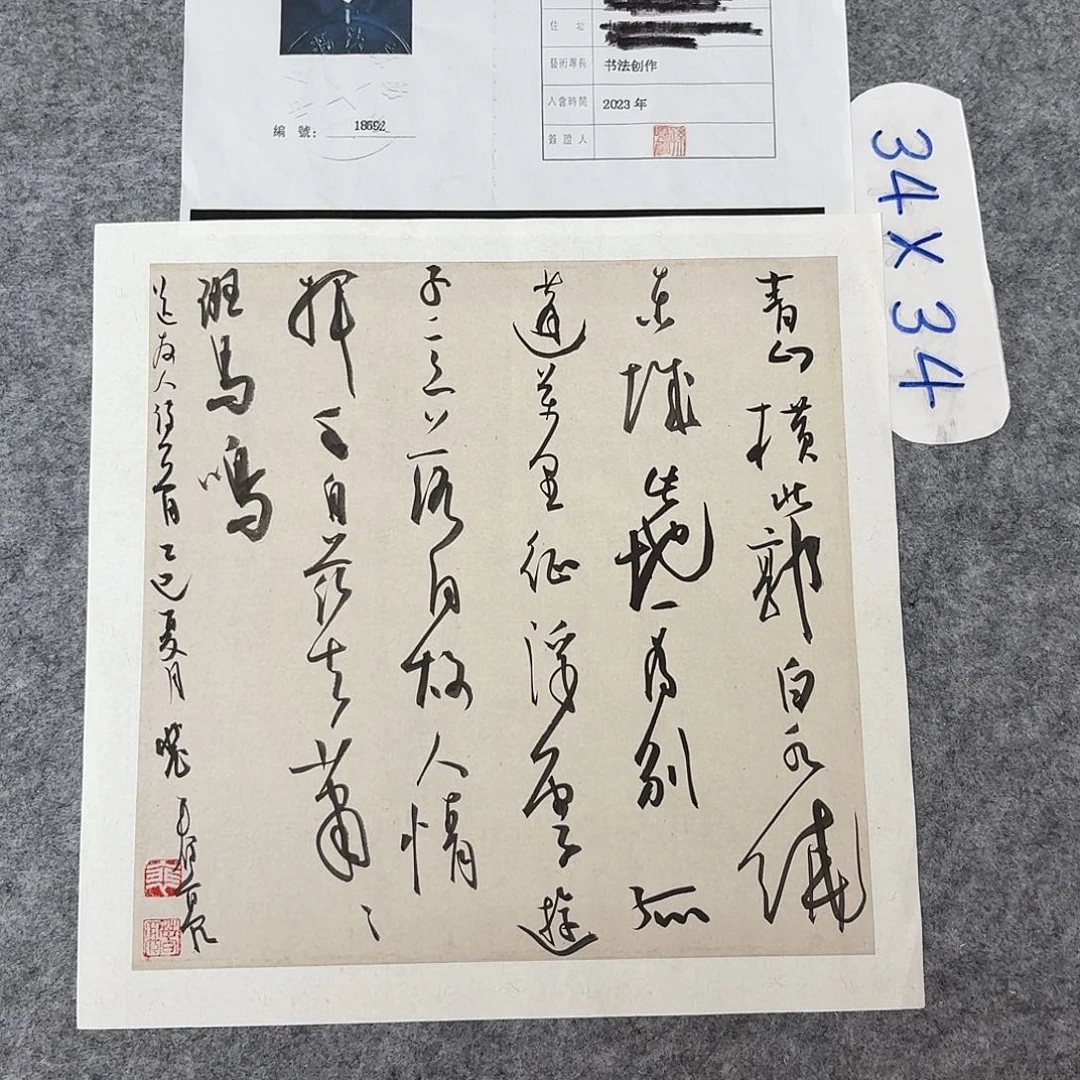 住 址
藝術專長 书法创作
入會時間 2023 年
簽證人
編 號: 18692
34×34
青山横北郭白水绕
东城此地一为别孤
蓬万里征浮云遊
子意落日故人情
挥手自兹去萧〻
班马鸣
送友人诗一首 乙巳夏月